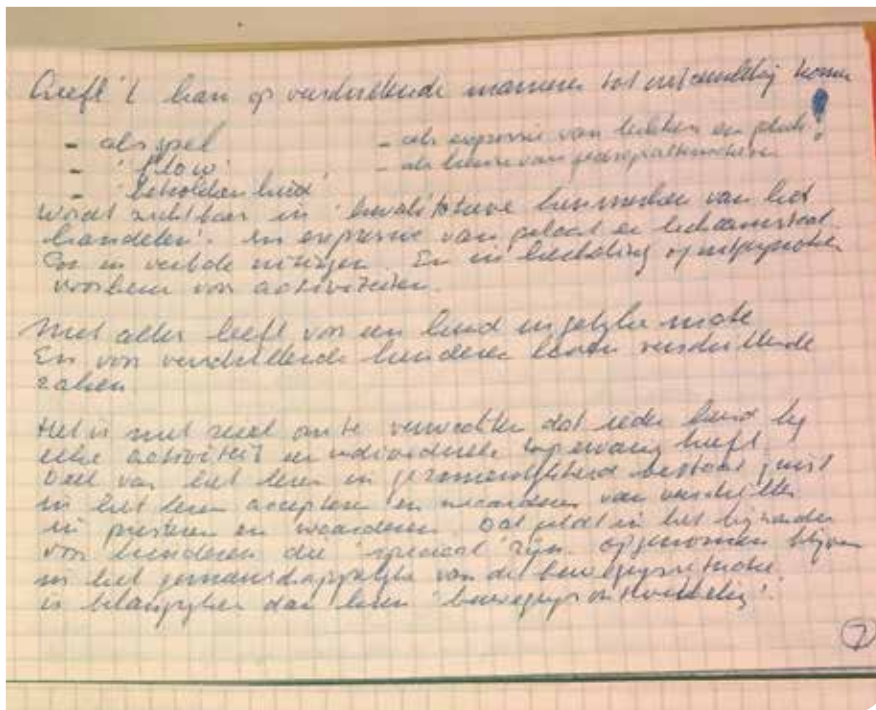 Leeft 't kan op verschillende manieren tot ontwikkeling komen!
- als spel - als expressie van lukken en geluk
- 'flow' - als keuze van
- 'betrokkenheid'
Wordt zichtbaar in 'kwalitatieve kenmerken van het
handelen'. In expressie van gelaat en lichaamstaal.
En in verbale uitingen. En in herhaling op
voorkeur voor activiteiten.
Niet alles leeft voor een kind in gelijke mate
En voor verschillende kinderen leven verschillende
zaken
Het is niet reëel om te verwachten dat ieder kind bij
elke activiteit een individuele topervaring heeft.
Deel van het leren in gezamenlijkheid bestaat juist
in het leren accepteren en waarderen van verschillen
in presteren en waarderen. Dat geldt in het bijzonder
voor kinderen die 'speciaal' zijn. Opgenomen blijven
in het gemeenschappelijke van de bewegingssituatie
is belangrijker dan hun 'bewegingsontwikkeling'.
7